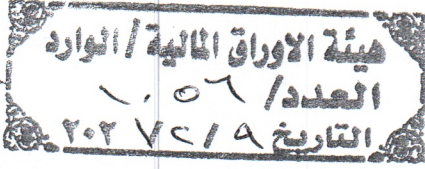 هيئة الاوراق المالية / الوارد
العدد / ١٠٥٦
التاريخ ٢٠٢١/٢/٩